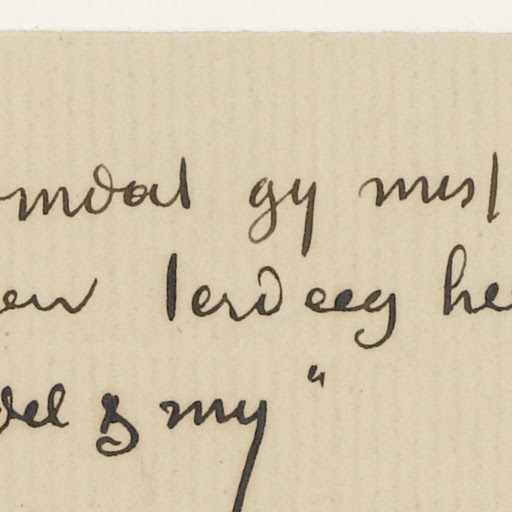 omdat gy mis
en terdeeg he
del & my"